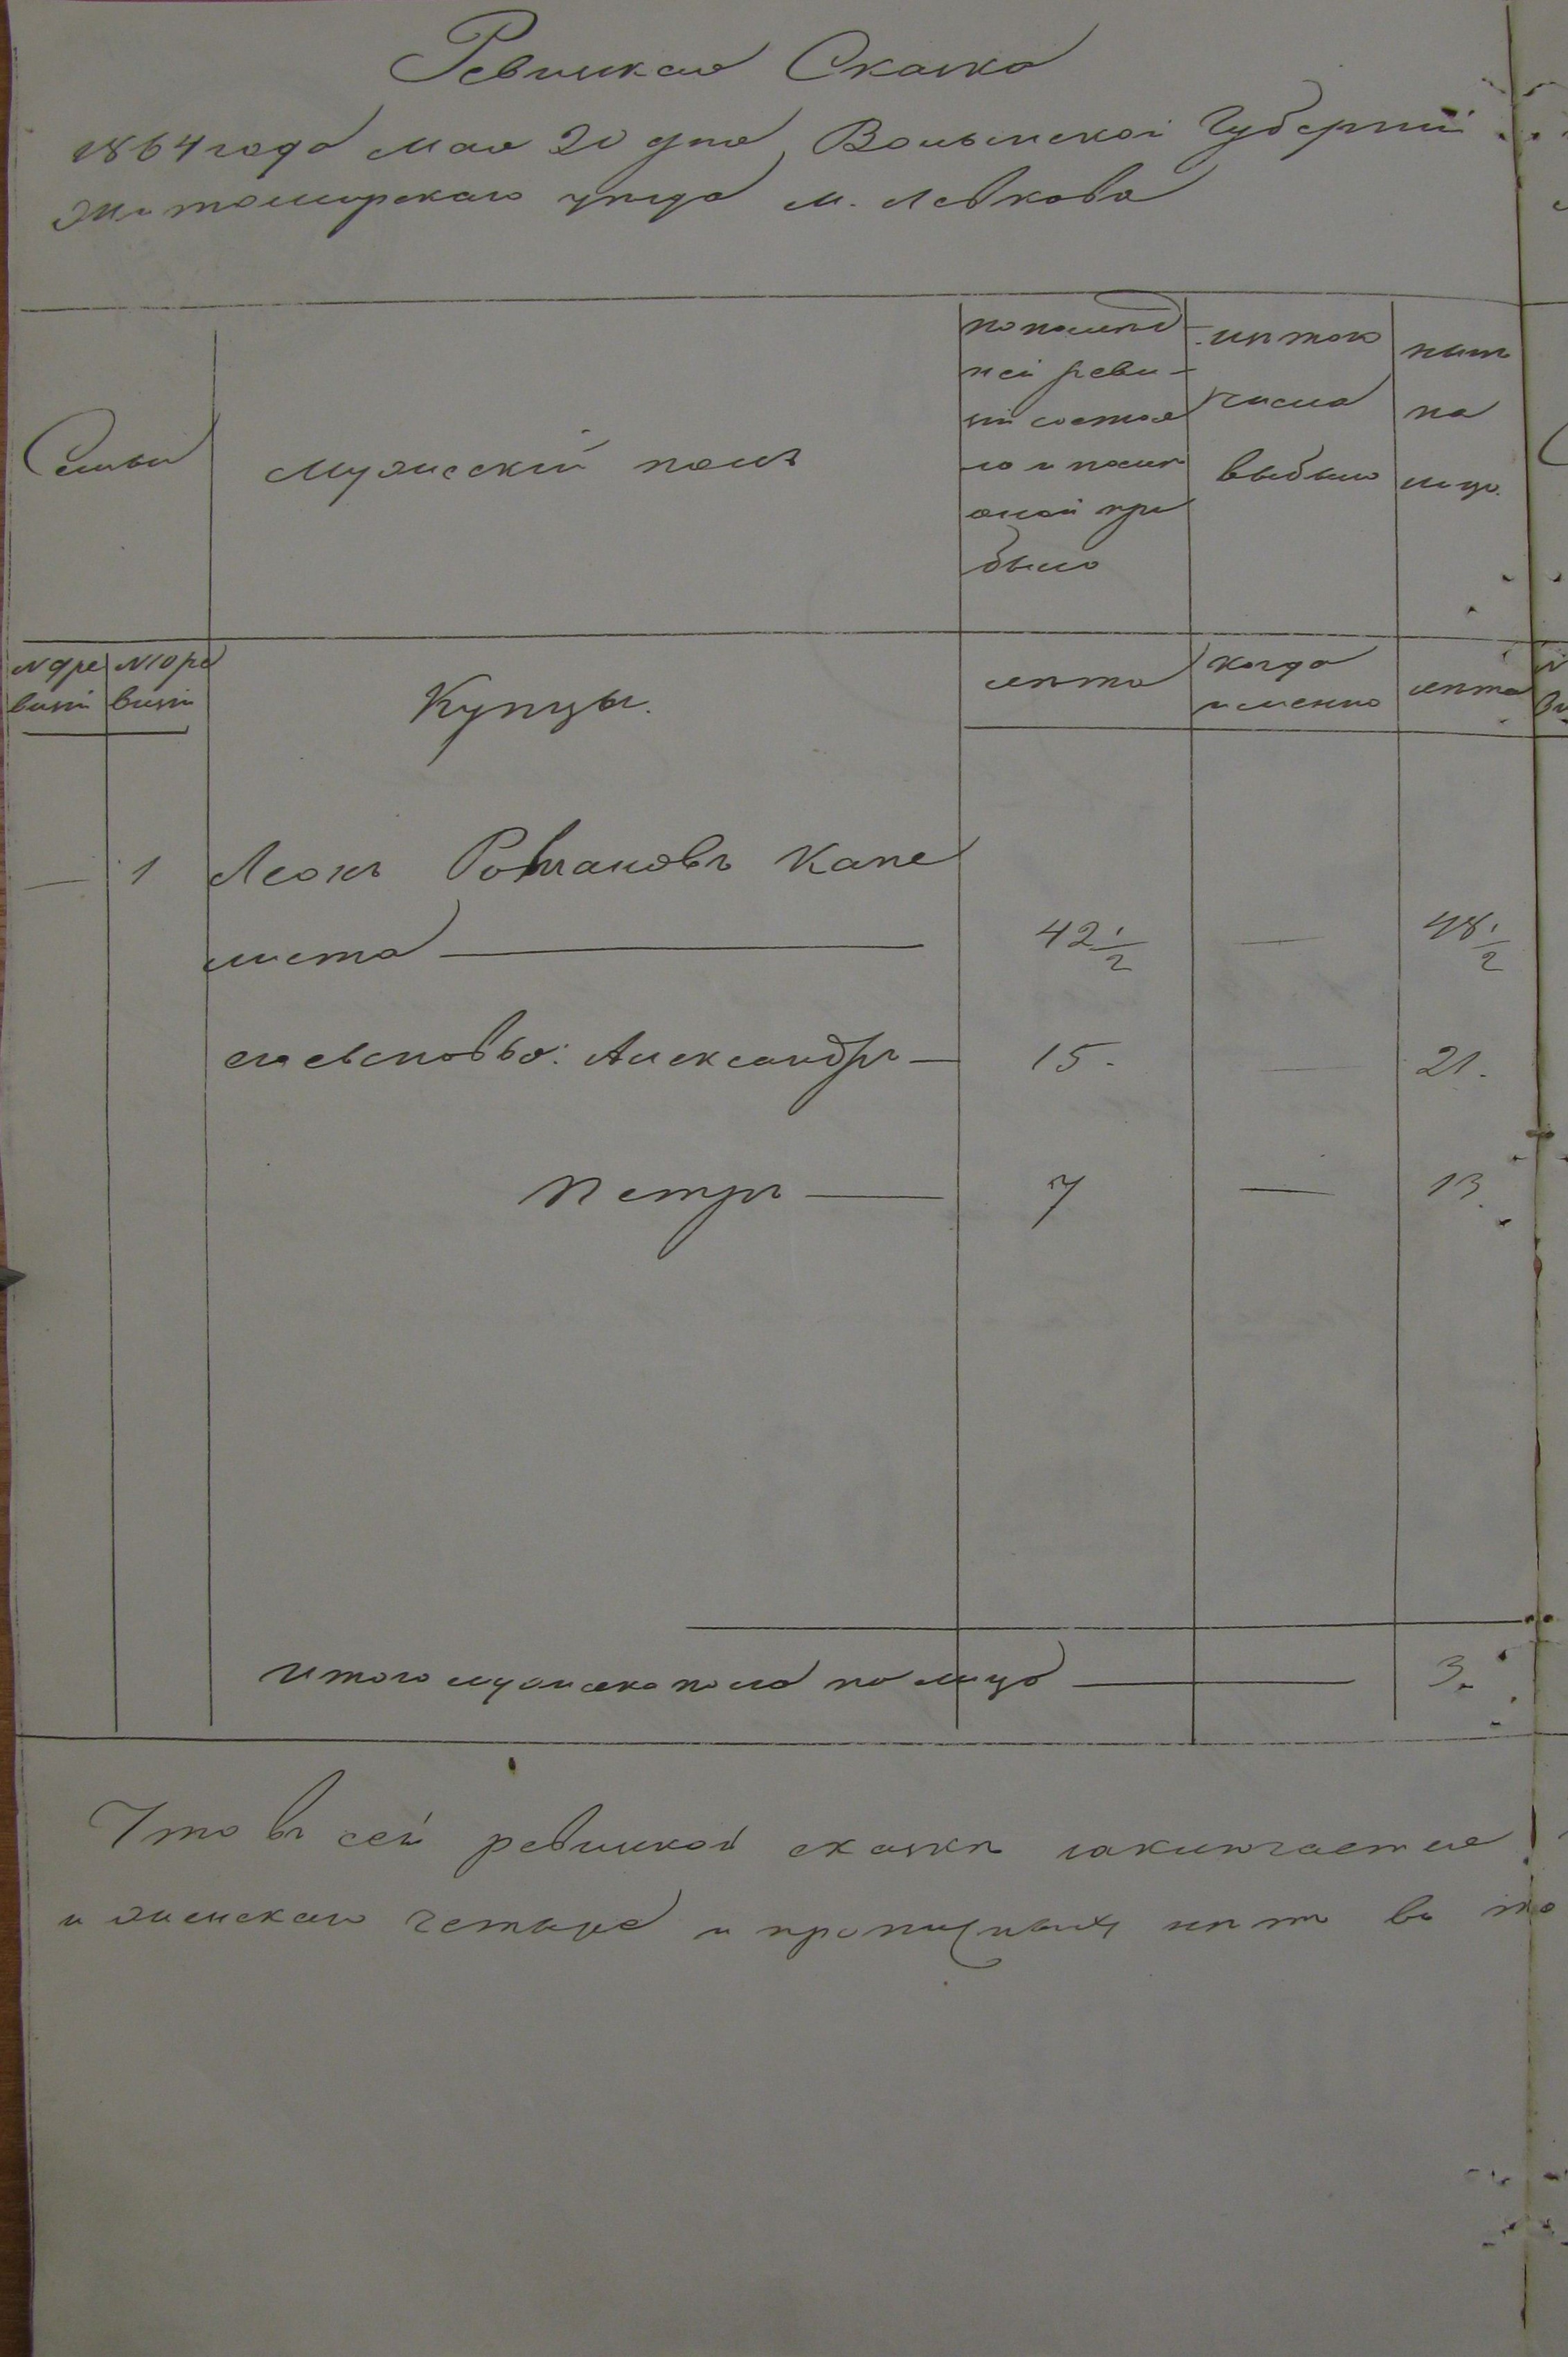 Ревизская Сказка
1864 года мая 20 дня Волынской Губерніи
Житомирскаго уѣзда м. Левкова
Семьи
Мужескій полъ
по послѣд
ней реви-
зіи состоя
ло и послѣ
оной при
было
изъ того
числа
выбыло
нынѣ
на
лицо.
№ 9 ре
визіи
№ 10 ре
визіи
Купцы.
лѣта
когда
именно
лѣта
— 1 Леонъ Романовъ Капе
листа — 42 1/2 — 48 1/2
его сыновья: Александръ — 15. — 21.
Петръ — 7 — 13.
Итого мужеска пола на лицо — 3.
Что въ сей ревизской сказкѣ заключается
и женскаго четыре и прописныхъ нѣтъ въ то